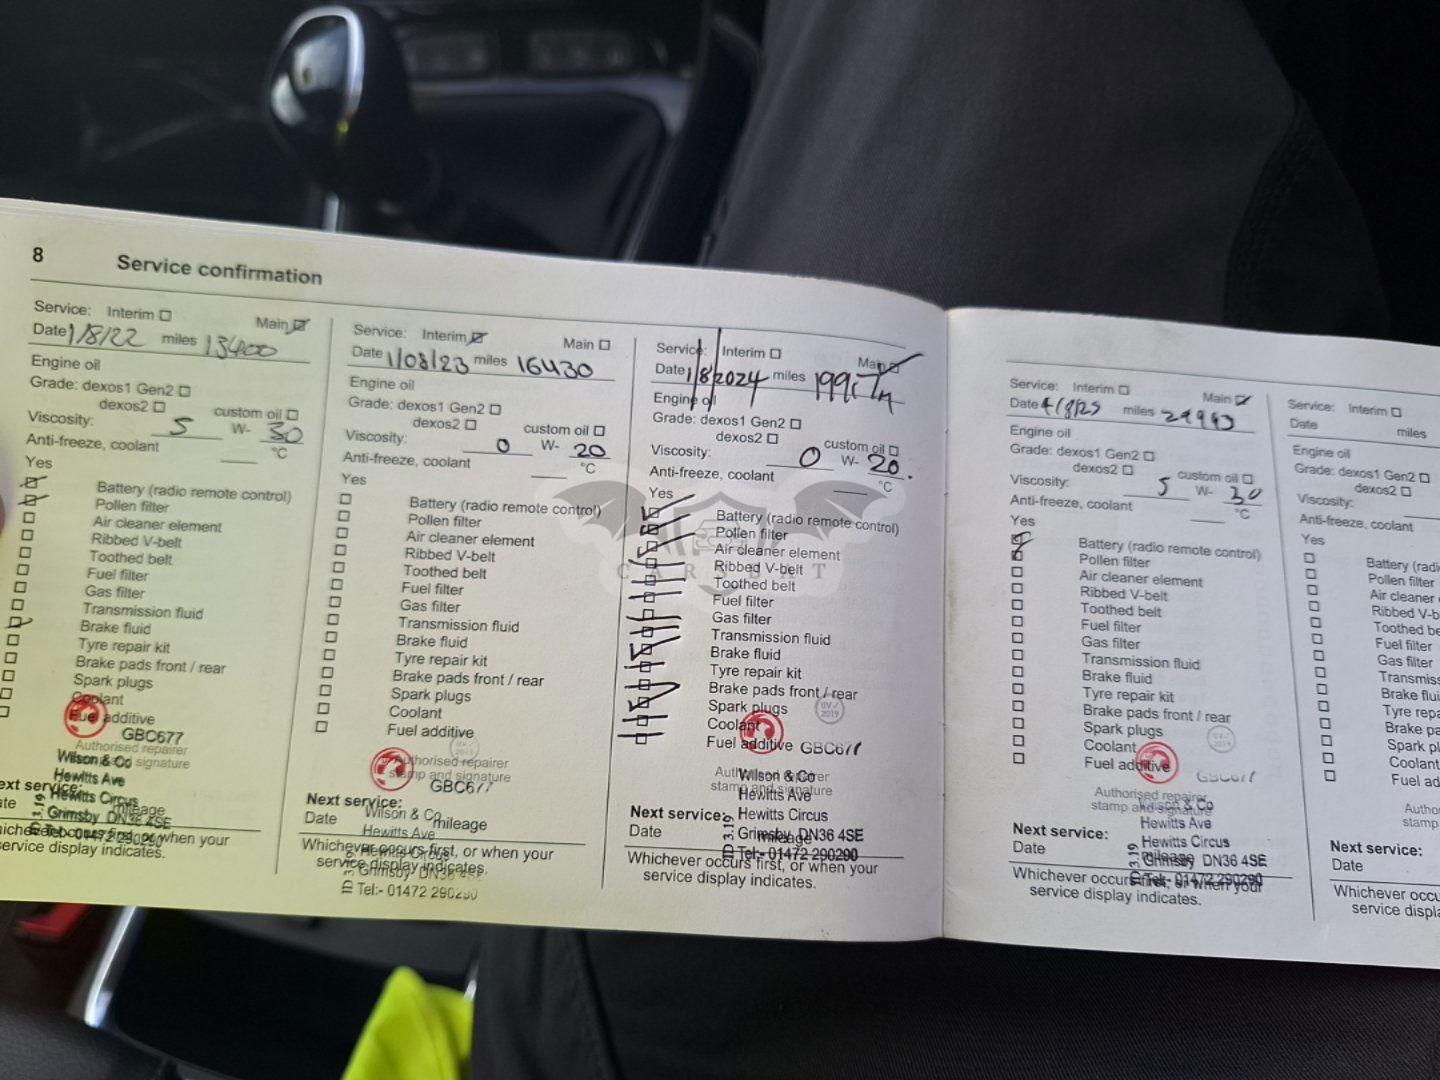 8 Service confirmation
Service: Interim Main
Date 1/8/22 miles 13400
Engine oil
Grade: dexos1 Gen2
dexos2 custom oil
Viscosity: 5 W- 30
Anti-freeze, coolant °C
Yes
Battery (radio remote control)
Pollen filter
Air cleaner element
Ribbed V-belt
Toothed belt
Fuel filter
Gas filter
Transmission fluid
Brake fluid
Tyre repair kit
Brake pads front / rear
Spark plugs
Coolant
Fuel additive
GBC677
Authorised repairer
stamp and signature
Wilson & Co
Hewitts Ave
Hewitts Circus
Grimsby DN36 4SE
Tel:- 01472 290290
ID 3.19
Next service:
Date mileage
Whichever occurs first, or when your
service display indicates.
Service: Interim Main
Date 1/08/23 miles 16430
Engine oil
Grade: dexos1 Gen2
dexos2 custom oil
Viscosity: 0 W- 20
Anti-freeze, coolant °C
Yes
Battery (radio remote control)
Pollen filter
Air cleaner element
Ribbed V-belt
Toothed belt
Fuel filter
Gas filter
Transmission fluid
Brake fluid
Tyre repair kit
Brake pads front / rear
Spark plugs
Coolant
Fuel additive
Authorised repairer
stamp and signature
GBC677
Wilson & Co
Hewitts Ave
Hewitts Circus
Grimsby DN36 4SE
Tel:- 01472 290290
ID 3.19
Next service:
Date mileage
Whichever occurs first, or when your
service display indicates.
Service: Interim Main
Date 1/8/2024 miles
Engine oil
Grade: dexos1 Gen2
dexos2 custom oil
Viscosity: 0 W- 20
Anti-freeze, coolant °C
Yes
Battery (radio remote control)
Pollen filter
Air cleaner element
Ribbed V-belt
Toothed belt
Fuel filter
Gas filter
Transmission fluid
Brake fluid
Tyre repair kit
Brake pads front / rear
Spark plugs
Coolant
Fuel additive GBC677
UV✓ 2019
Authorised repairer
stamp and signature
Wilson & Co
Hewitts Ave
Hewitts Circus
Grimsby DN36 4SE
Tel:- 01472 290290
ID 3.19
Next service:
Date mileage
Whichever occurs first, or when your
service display indicates.
CARSBAT
Service: Interim Main
Date miles
Engine oil
Grade: dexos1 Gen2
dexos2 custom oil
Viscosity: 5 W- 30
Anti-freeze, coolant °C
Yes
Battery (radio remote control)
Pollen filter
Air cleaner element
Ribbed V-belt
Toothed belt
Fuel filter
Gas filter
Transmission fluid
Brake fluid
Tyre repair kit
Brake pads front / rear
Spark plugs
Coolant
Fuel additive GBC677
UV✓ 2019
Authorised repairer
stamp and signature
Wilson & Co
Hewitts Ave
Hewitts Circus
Grimsby DN36 4SE
Tel:- 01472 290290
ID 3.19
Next service:
Date mileage
Whichever occurs first, or when your
service display indicates.
Service: Interim
Date miles
Engine oil
Grade: dexos1 Gen2
dexos2
Viscosity:
Anti-freeze, coolant
Yes
Battery (radi
Pollen filter
Air cleaner e
Ribbed V-b
Toothed be
Fuel filter
Gas filter
Transmiss
Brake flui
Tyre repa
Brake pa
Spark pl
Coolant
Fuel ad
Autho
stamp
Next service:
Date
Whichever occu
service displa